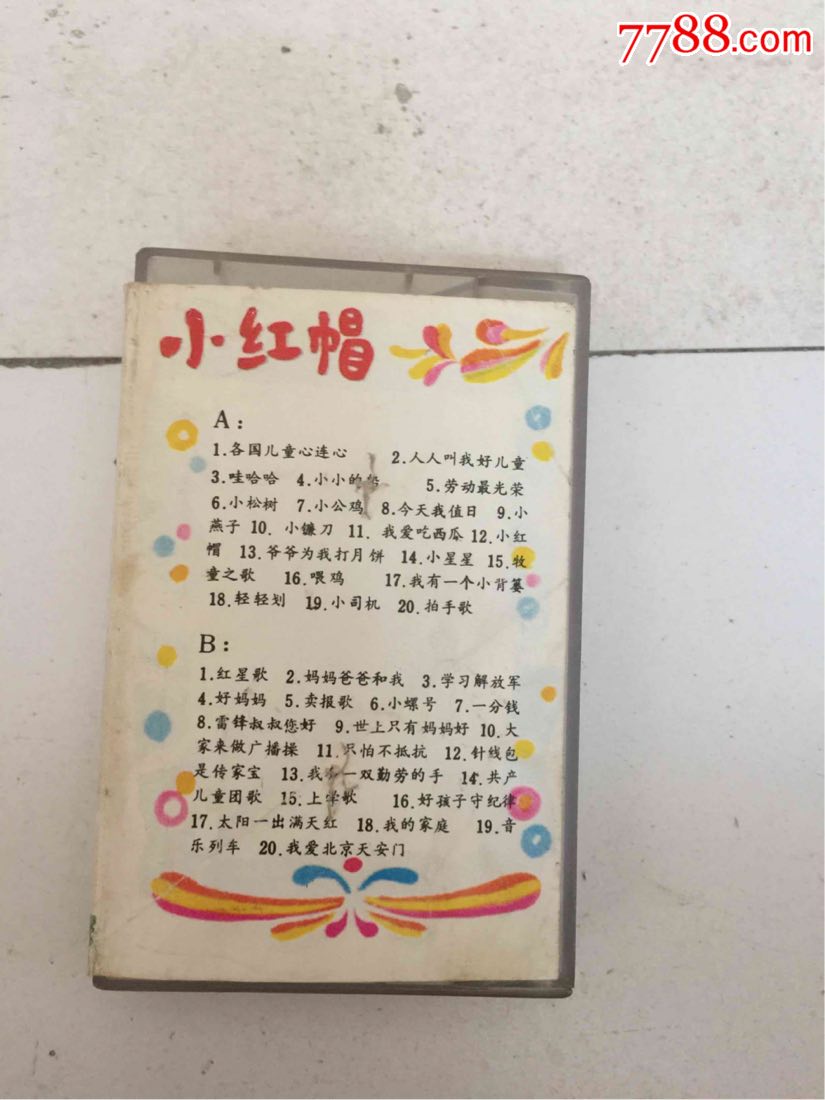 7788.com
小红帽
A：
1.各国儿童心连心 2.人人叫我好儿童
3.哇哈哈 4.小小的船 5.劳动最光荣
6.小松树 7.小公鸡 8.今天我值日 9.小
燕子 10.小镰刀 11.我爱吃西瓜 12.小红
帽 13.爷爷为我打月饼 14.小星星 15.牧
童之歌 16.喂鸡 17.我有一个小背篓
18.轻轻划 19.小司机 20.拍手歌
B：
1.红星歌 2.妈妈爸爸和我 3.学习解放军
4.好妈妈 5.卖报歌 6.小螺号 7.一分钱
8.雷锋叔叔您好 9.世上只有妈妈好 10.大
家来做广播操 11.只怕不抵抗 12.针线包
是传家宝 13.我有一双勤劳的手 14.共产
儿童团歌 15.上学歌 16.好孩子守纪律
17.太阳一出满天红 18.我的家庭 19.音
乐列车 20.我爱北京天安门